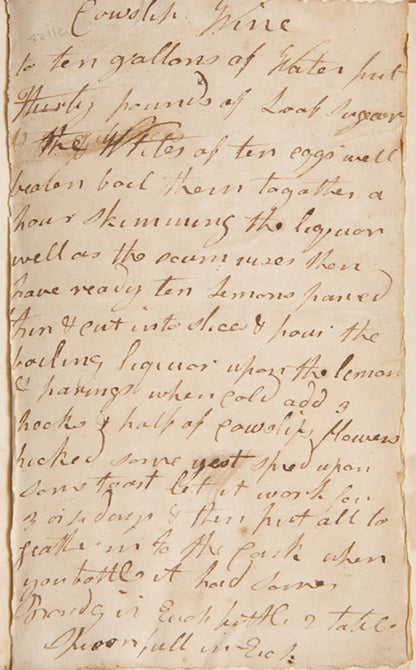 Cowslip Wine
to ten gallons of Water put
thirty pounds of Loaf Sugear
& the Whites of ten eggs well
beaten boil them togather a
hour skimming the liquor
well as the scum rises then
have ready ten Lemons pared
thin & cut into slices & pour the
boiling liquor upon the lemon
& parings when cold add 3
pecks & half of cowslip flowers
picked some yest spred upon
som toast let it work for
3 or 4 days & then put all to
geather in to the cask when
you bottle it had some
Brandy in Each bottle 2 table
Spoonfull in Each